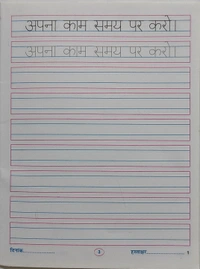 अपना काम समय पर करो।
अपना काम समय पर करो।
दिनांक 1 हस्ताक्षर 1